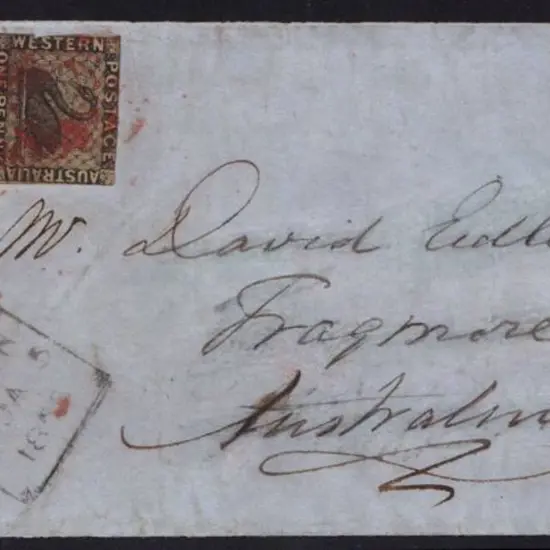 WESTERN
POSTAGE
AUSTRALIA
ONE PENNY
Mr. David Edl
Fragmore
Australin
5
JA
18